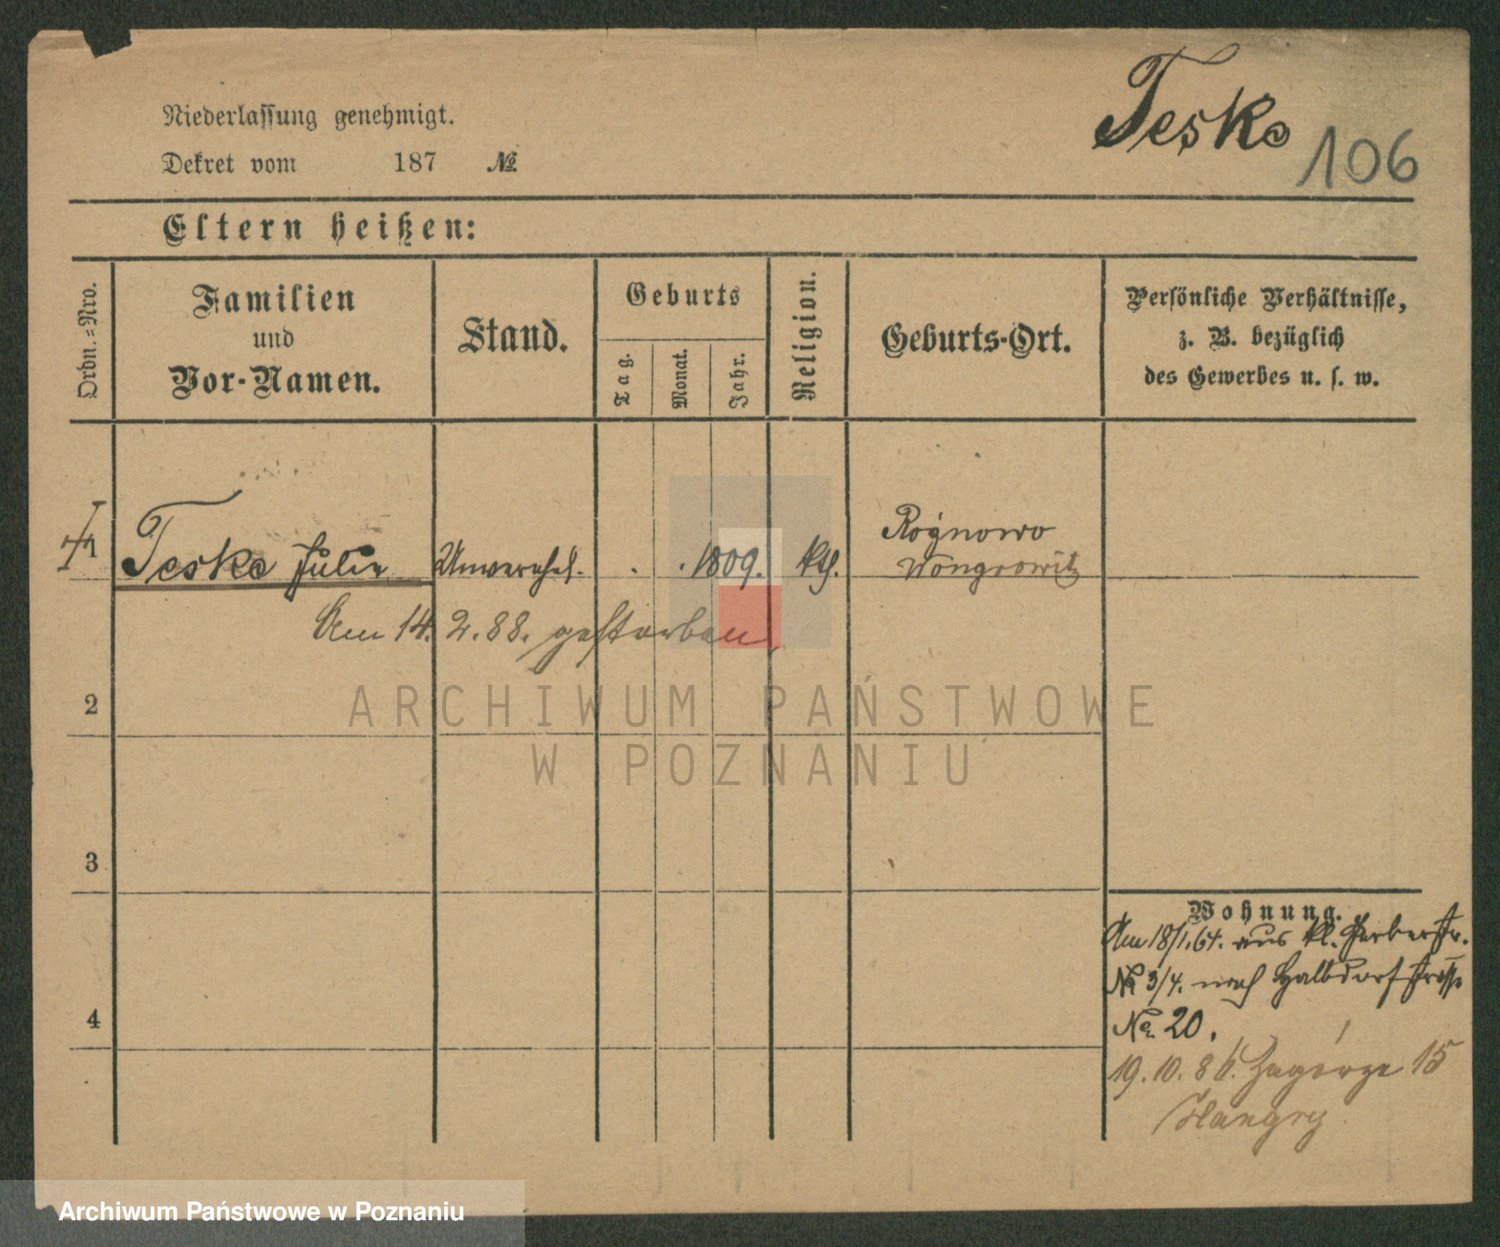 Teske 106
Niederlassung genehmigt.
Dekret vom 187 №
Eltern heißen:
Ordn.-Nro.
Familien
und
Vor-Namen.
Stand.
Geburts
Tag.
Monat.
Jahr.
Religion.
Geburts-Ort.
Persönliche Verhältnisse,
z. B. bezüglich
des Gewerbes u. s. w.
1 Teske Julie Unverehel. . . 1809. kth. Rożnowo
Wongrowitz
Am 14. 2. 88. gestorben
2
ARCHIWUM PAŃSTWOWE
W POZNANIU
3
Wohnung.
Am 18/1.64. aus kl. Gerberstr.
№ 3/4. nach Halbdorfstrasse
№ 20.
4
19. 10. 86. Zagórze 15
Archiwum Państwowe w Poznaniu